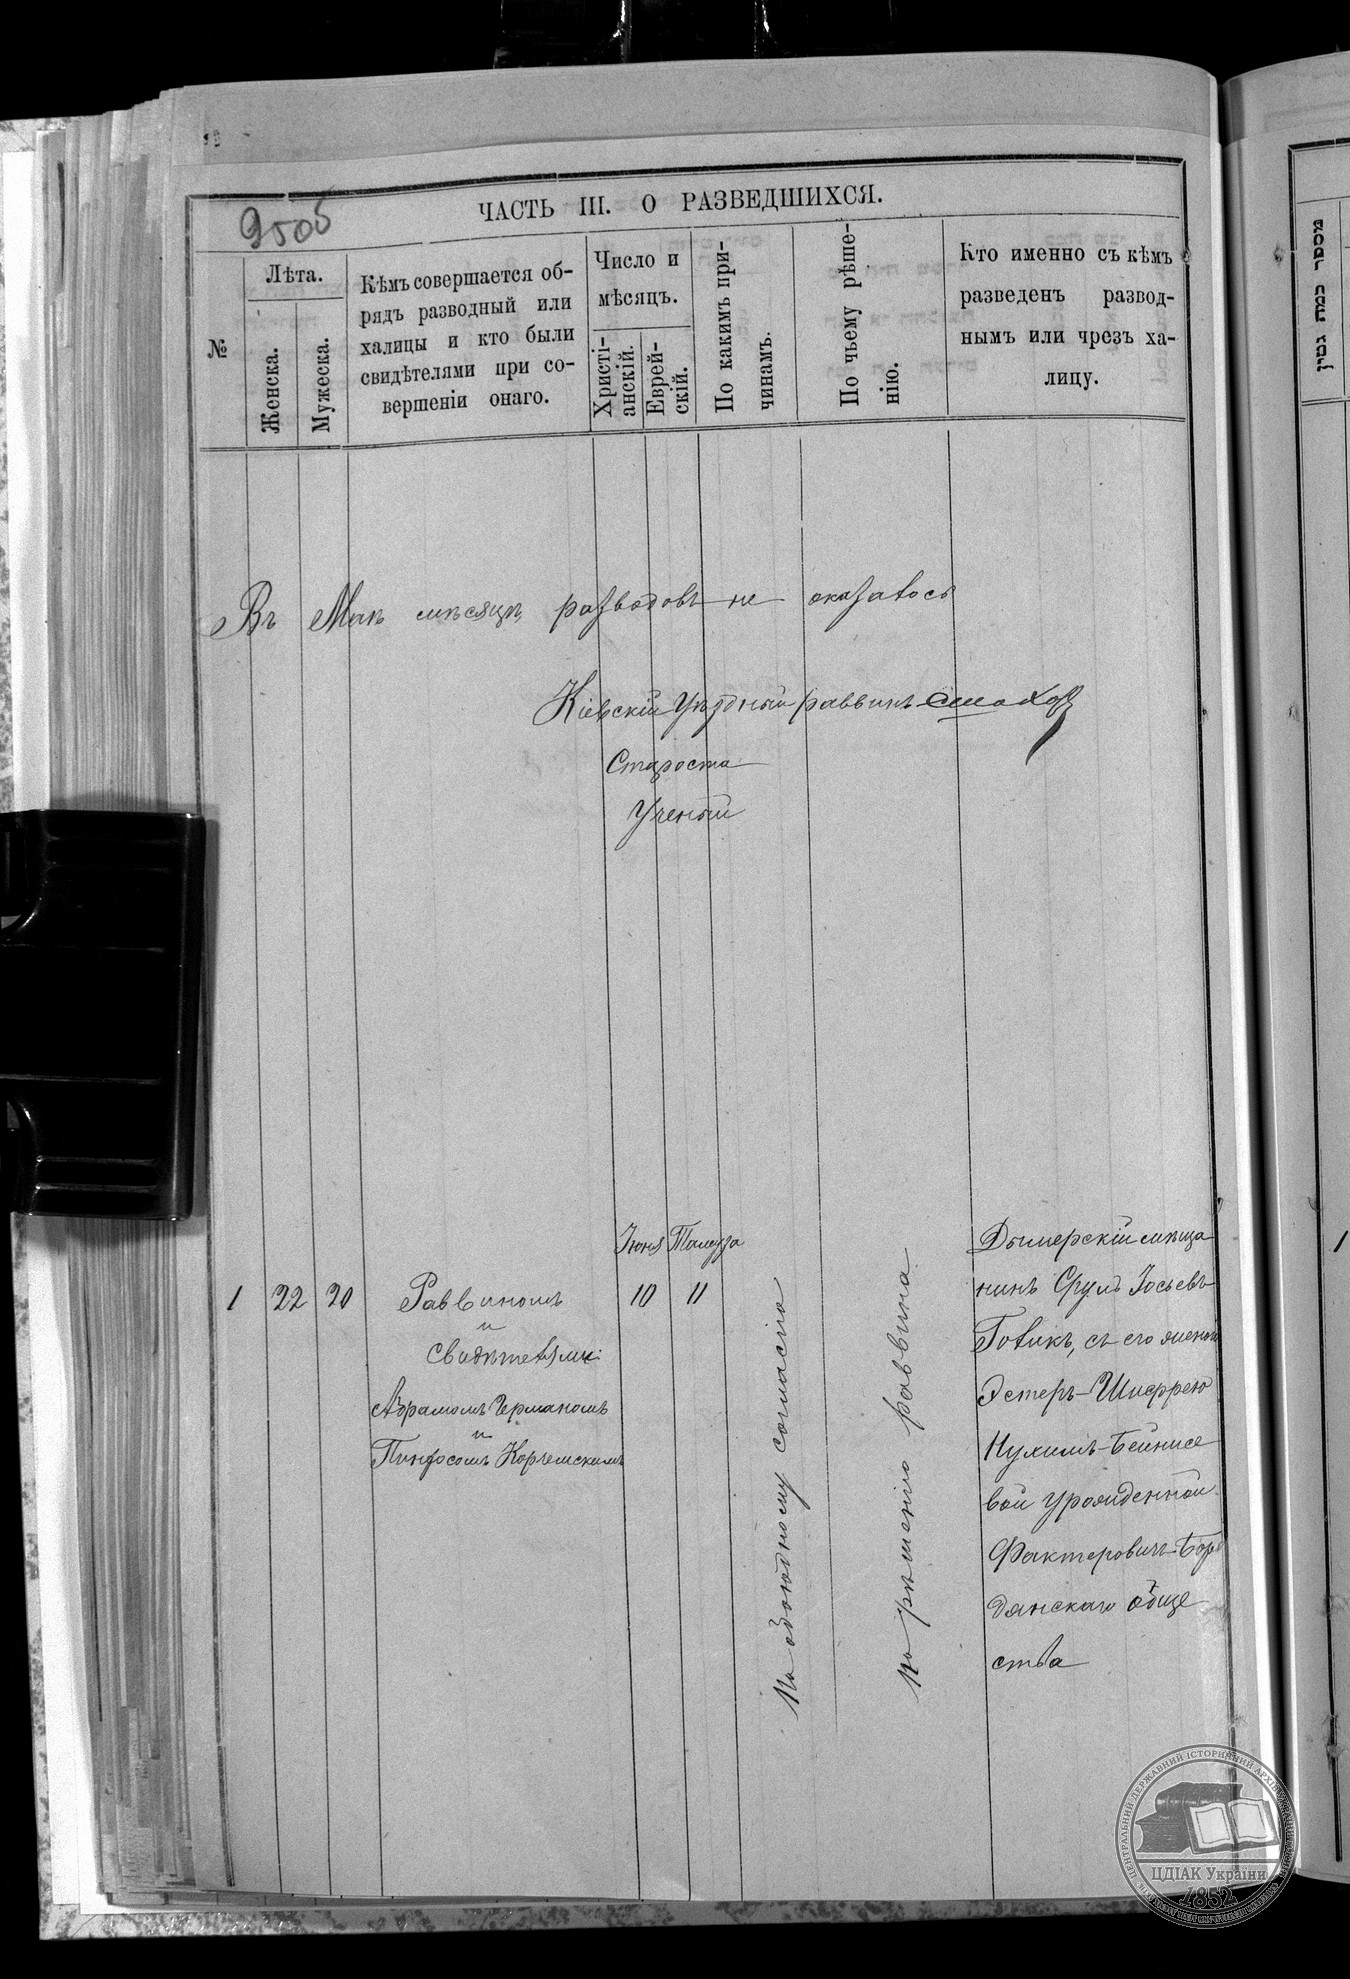 950б
ЧАСТЬ III. О РАЗВЕДШИХСЯ.
№
Лѣта.
Женска.
Мужеска.
Кѣмъ совершается об-
рядъ разводный или
халицы и кто были
свидѣтелями при со-
вершеніи онаго.
Число и
мѣсяцъ.
Христі-
анскій.
Еврей-
скій.
По какимъ при-
чинамъ.
По чьему рѣше-
нію.
Кто именно съ кѣмъ
разведенъ развод-
нымъ или чрезъ ха-
лицу.
מספר כמה גטין
Въ Маѣ мѣсяцѣ разводовъ не оказалось
Кіевскій Уѣздный раввинъ
Староста
Ученый
1
22
20
Раввиномъ
и
Свидѣтелями:
Абрамомъ Германомъ
и
Пинхосомъ Корчемскимъ
Іюня
10
Тамуза
11
По обоюдному согласію
По рѣшенію раввина
Дымерскій мѣща
нинъ Сруль Іосьевъ
Говикъ, съ его женою
Эстеръ-Шифрею
Нухимъ-Бейнисо
вой урожденной
Фактеровичъ Боро
дянскаго обще
ства
1
ЦЕНТРАЛЬНИЙ ДЕРЖАВНИЙ ІСТОРИЧНИЙ АРХІВ УКРАЇНИ
ЦДІАК України
1852